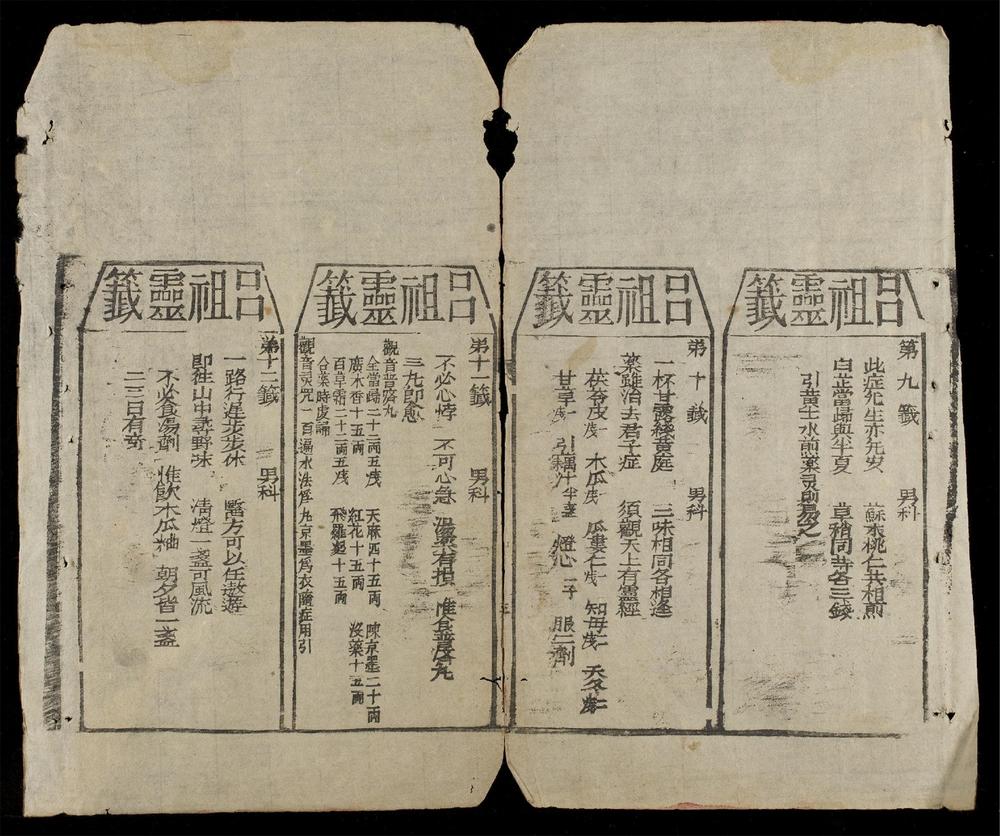 呂祖靈籤
第九籤 男科
此症先生亦无安 蘇木桃仁共相煎
白芷當歸與半夏 草稍同等各三錢
引黃土水煎藥
呂祖靈籤
第十籤 男科
一杯甘露繞黃庭 三味相同各相逢
藥雖治去君子症 須觀天上有靈經
茯苓皮二戔 木瓜二戔 瓜蔞仁二戔 知母二戔 天冬二戔
甘草一戔 引藕汁半盞 燈心一子 服二劑
呂祖靈籤
第十一籤 男科
不必心悸 不可心急 湯藥有損 惟食普度丸
三九即愈
觀音普度丸
全當歸二十二兩五戔 天麻四十五兩 陳京墨二十兩
廣木香十五兩 紅花十五兩 沒藥十五兩
百草霜二十二兩五戔 飛羅麪十五兩
合藥時虔誦
觀音灵咒一百遍水法為丸京墨為衣隨症用引
呂祖靈籤
第十二籤 男科
一路行逢步步休 醫方可以任遨遊
即往山中尋野味 清燈一盞可風流
不必食湯劑 惟飲木瓜紬 朝夕皆一盞
二三日有奇
三